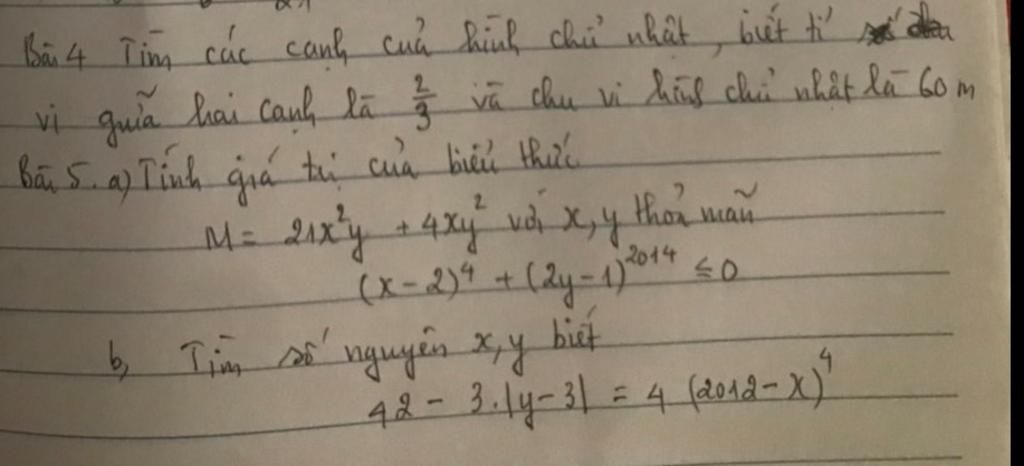 Bài 4 Tìm các cạnh của hình chữ nhật, biết tỉ số
vi giữa hai cạnh là 2/3 và chu vi hình chữ nhật là 60 m
Bài 5. a) Tính giá trị của biểu thức
M = 21x²y + 4xy² với x, y thỏa mãn
(x - 2)⁴ + (2y - 1)²⁰¹⁴ ≤ 0
b, Tìm số nguyên x, y biết
42 - 3.|y - 3| = 4 (2012 - x)⁴